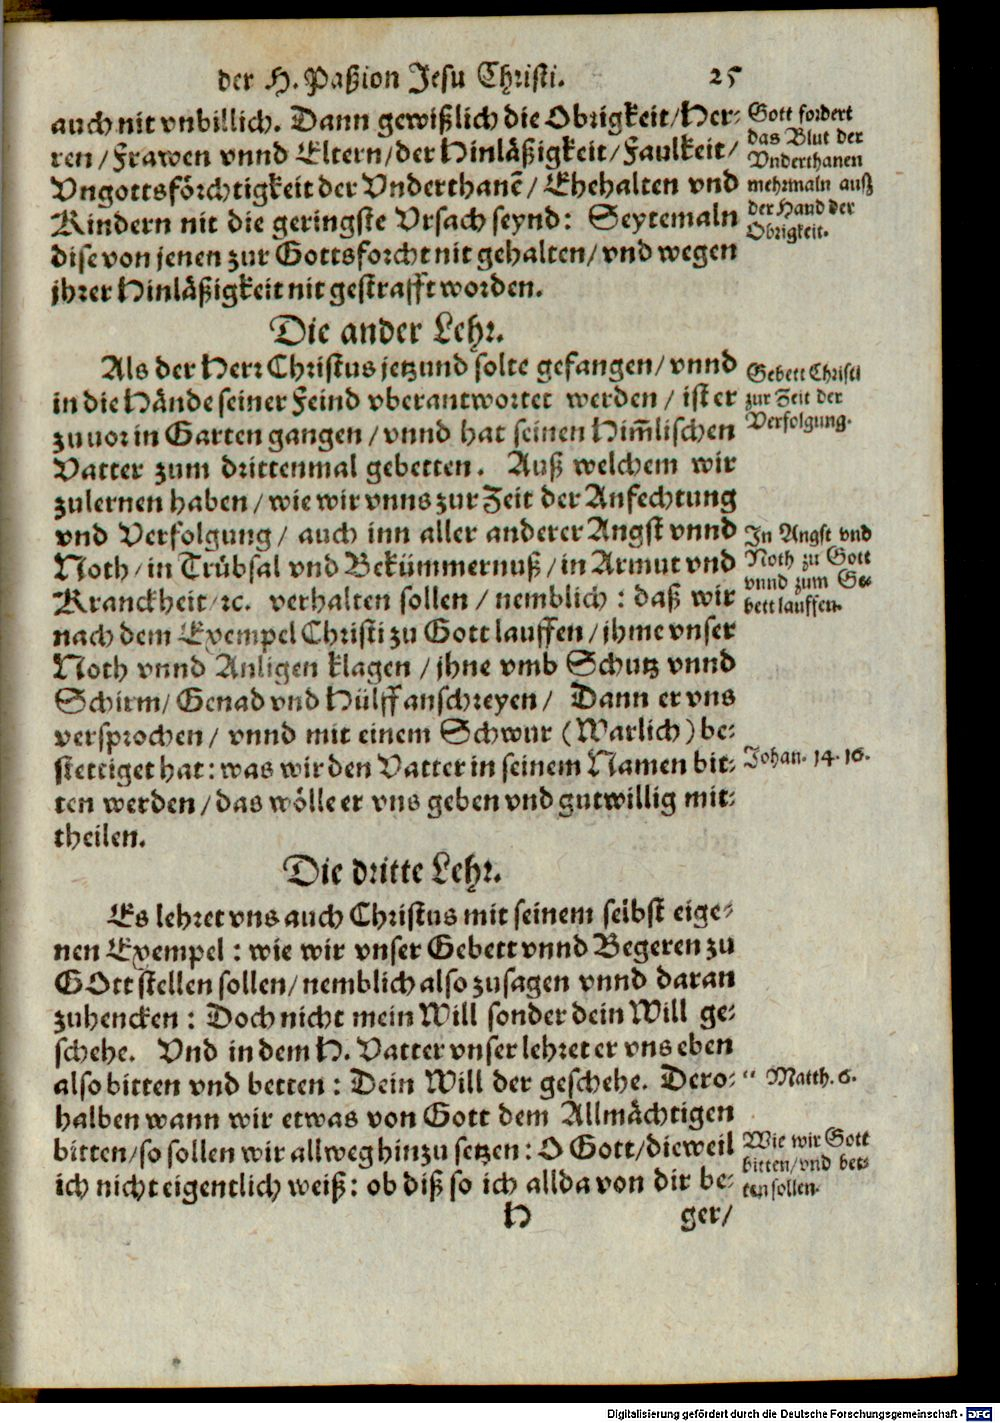 der H. Paßion Jesu Christi. 25
auch nit vnbillich. Dann gewißlich die Obrigkeit/Her-
ren/Frawen vnnd Eltern/der Hinläßigkeit/Faulkeit/
Vngottsförchtigkeit der Vnderthanẽ/Ehehalten vnd
Kindern nit die geringste Vrsach seynd: Seytemaln
dise von jenen zur Gottsforcht nit gehalten/vnd wegen
jhrer Hinläßigkeit nit gestrafft worden.
Gott fordert
das Blut der
Vnderthanen
mehrmaln auß
der Hand der
Obrigkeit.
Die ander Lehr.
Als der Herr Christus jetzund solte gefangen/vnnd
in die Hände seiner Feind vberantwortet werden/ist er
zuuor in Garten gangen/vnnd hat seinen Him̃lischen
Vatter zum drittenmal gebetten. Auß welchem wir
zulernen haben/wie wir vnns zur Zeit der Anfechtung
vnd Verfolgung/auch inn aller anderer Angst vnnd
Noth/in Trübsal vnd Bekümmernuß/in Armut vnd
Kranckheit/ꝛc. verhalten sollen/nemblich: daß wir
nach dem Exempel Christi zu Gott lauffen/jhme vnser
Noth vnnd Anligen klagen/jhne vmb Schutz vnnd
Schirm/Genad vnd Hülff anschreyen/Dann er vns
versprochen/vnnd mit einem Schwur (Warlich) be-
stettiget hat: was wir den Vatter in seinem Namen bit-
ten werden/das wölle er vns geben vnd gutwillig mit-
theilen.
Gebett Christi
zur Zeit der
Verfolgung.
In Angst vnd
Noth zu Gott
vnnd zum Ge-
bett lauffen.
Johan. 14. 16.
Die dritte Lehr.
Es lehret vns auch Christus mit seinem selbst eige-
nen Exempel: wie wir vnser Gebett vnnd Begeren zu
GOtt stellen sollen/nemblich also zusagen vnnd daran
zuhencken: Doch nicht mein Will sonder dein Will ge-
schehe. Vnd in dem H. Vatter vnser lehret er vns eben
also bitten vnd betten: Dein Will der geschehe. Dero-
halben wann wir etwas von Gott dem Allmächtigen
bitten/so sollen wir allweg hinzu setzen: O Gott/dieweil
ich nicht eigentlich weiß: ob diß so ich allda von dir be-
" Matth. 6.
Wie wir Gott
bitten/vnd bet-
ten sollen.
H ger/
Digitalisierung gefördert durch die Deutsche Forschungsgemeinschaft - DFG